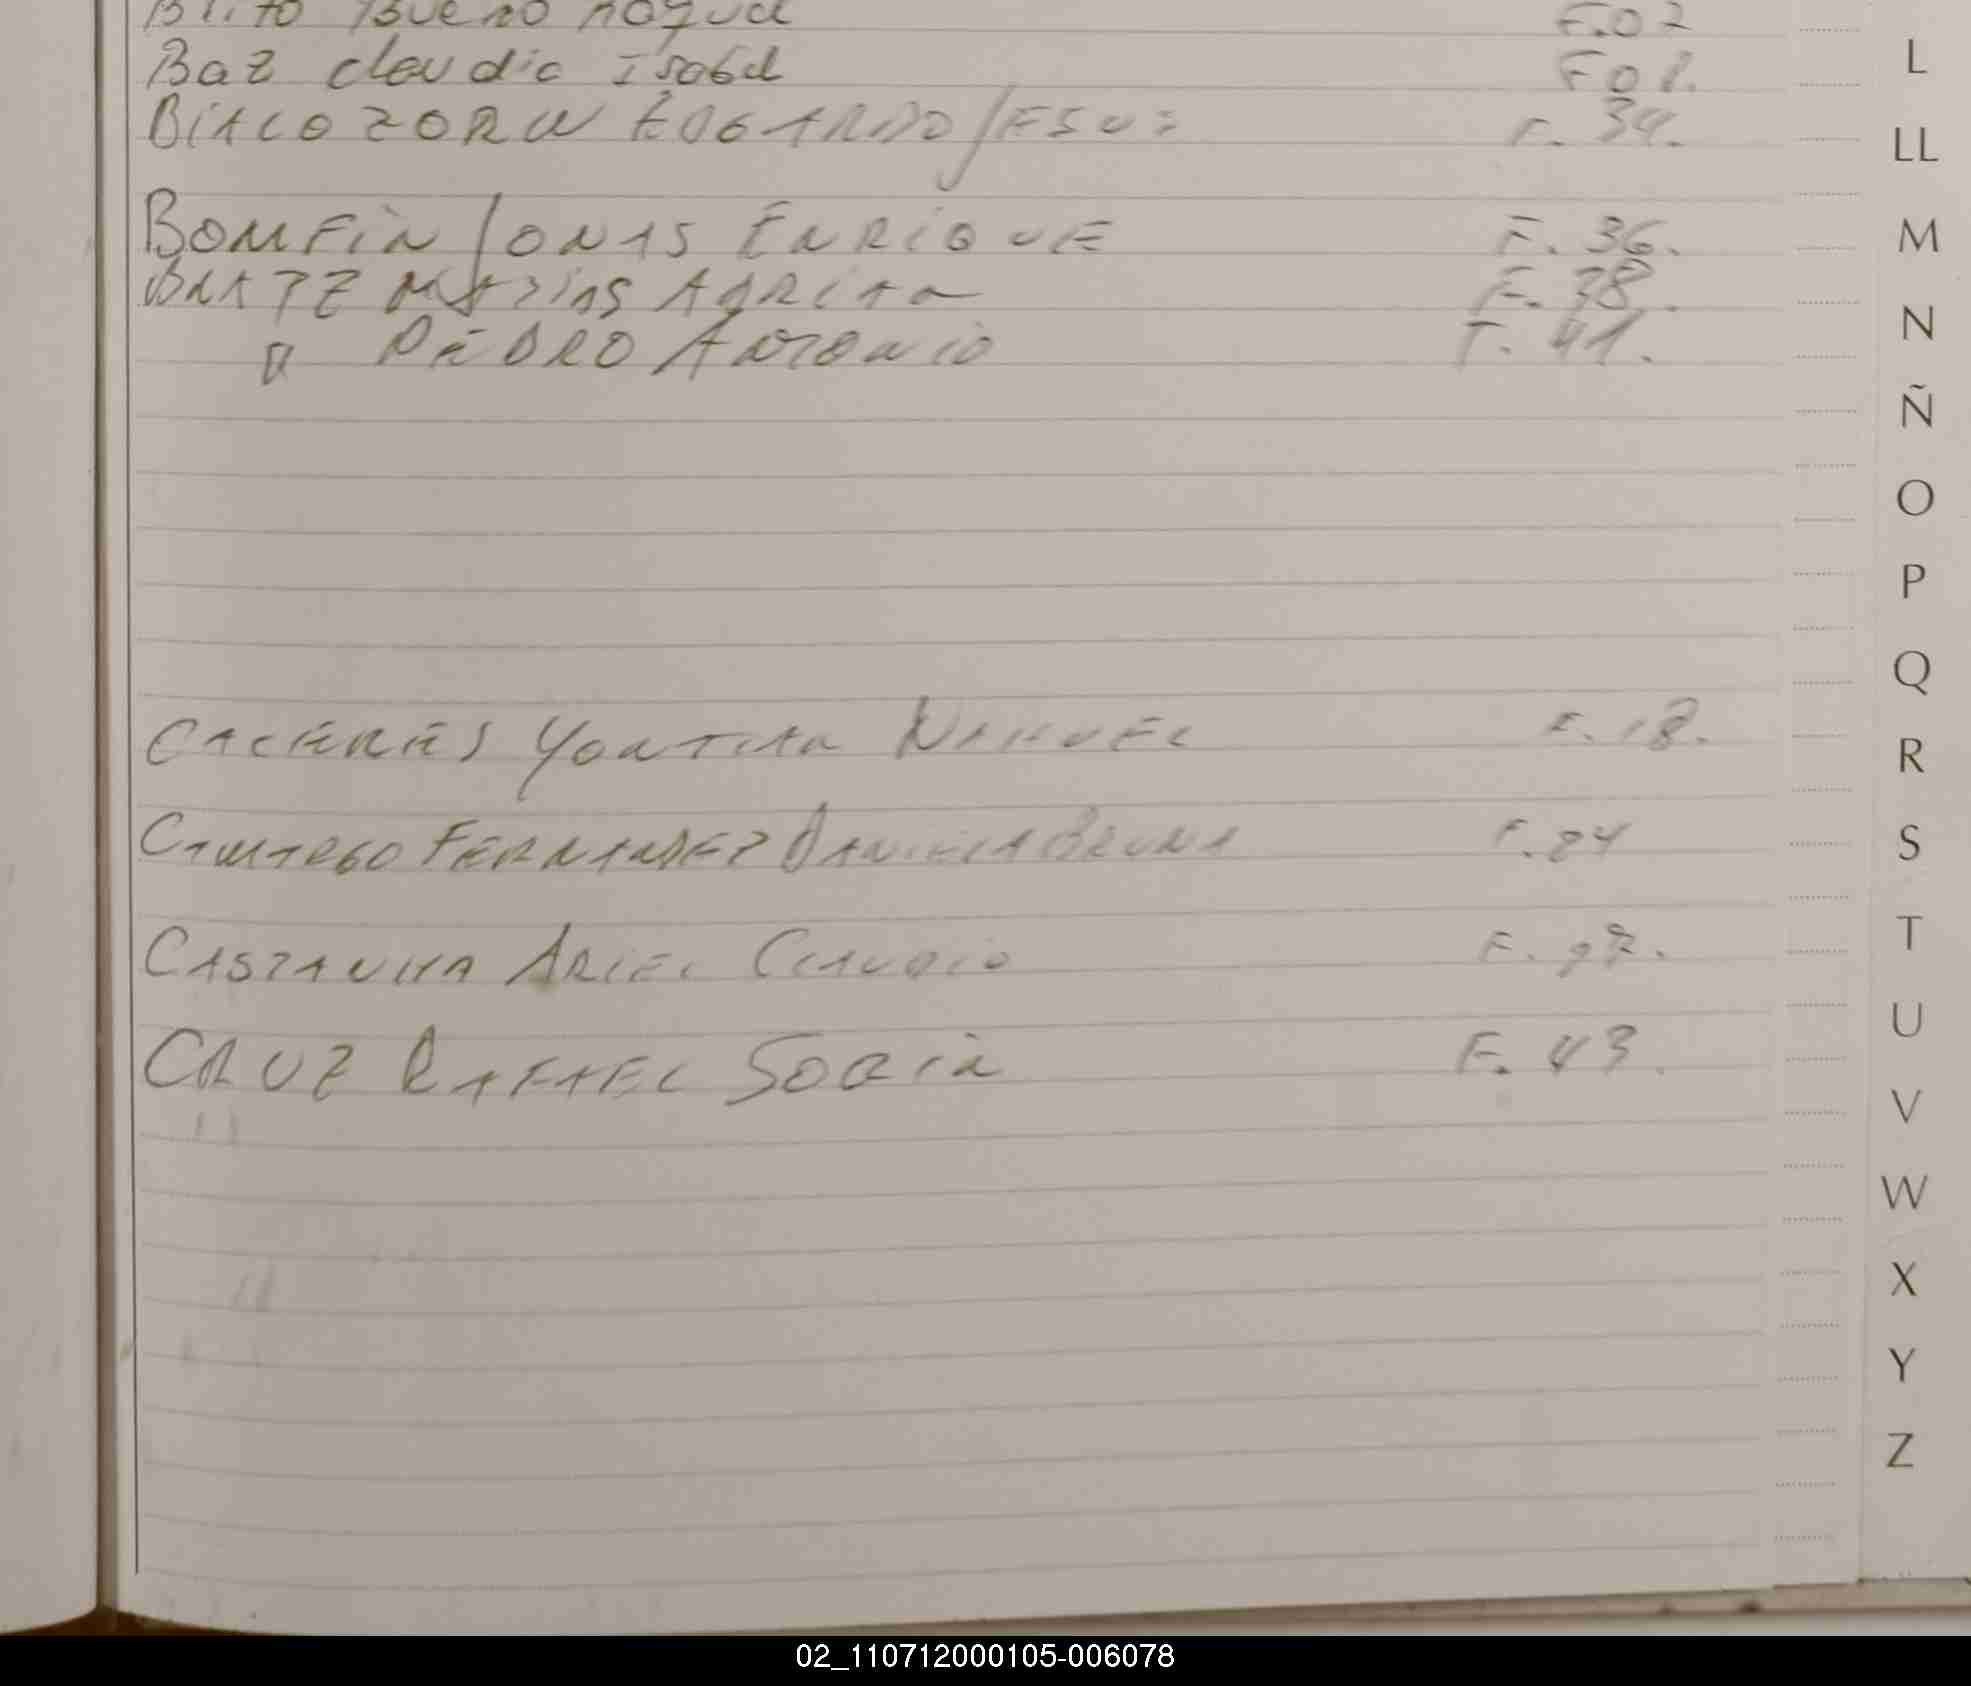 Brito Bueno F.07
Baz claudia Isabel F01.
BiALOZORW EDGARDO JESUS F. 34.
BOMFiN JONAS ENRiQUE F. 36.
BRATZ MATiAS ADRiAN F. 38.
" PEDRO ANTONiO F. 41.
CACERES YONATHAN NAHUEL F. 18.
CAMARGO FERNANDEZ DANIELA BRUNA F.24
CASTANHA ARIEL CLAUDiO F. 27.
CRUZ RAFAEL SORiA F. 43.
L
LL
M
N
Ñ
O
P
Q
R
S
T
U
V
W
X
Y
Z
02_110712000105-006078